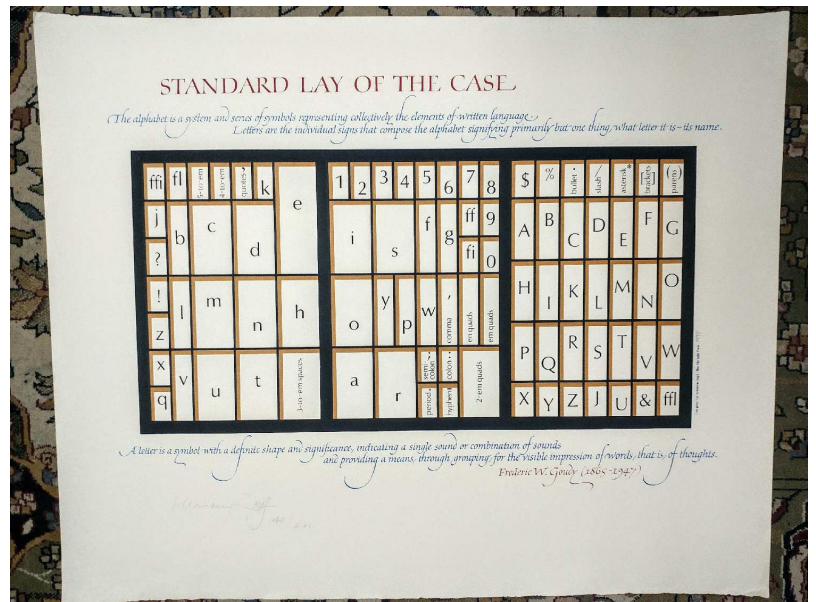 STANDARD LAY OF THE CASE
The alphabet is a system and series of symbols representing collectively the elements of written language.
Letters are the individual signs that compose the alphabet signifying primarily but one thing, what letter it is – its name.
ffi fl 5-to-em 4-to-em quotes ’ k e
j b c d
?
! l m n h
z
x v u t 3-to-em spaces
q
1 2 3 4 5 6 7 8
i s f g ff 9
fi 0
o y p w , comma en quads em quads
a r semi-colon ; colon : 2-em quads
period . hyphen
$ % bullet • slash / asterisk * brackets [ ] parens ( )
A B C D E F G
H I K L M N O
P Q R S T V W
X Y Z J U & ffl
A letter is a symbol with a definite shape and significance, indicating a single sound or combination of sounds
and providing a means, through grouping, for the visible impression of words, that is, of thoughts.
Frederic W. Goudy (1865-1947)